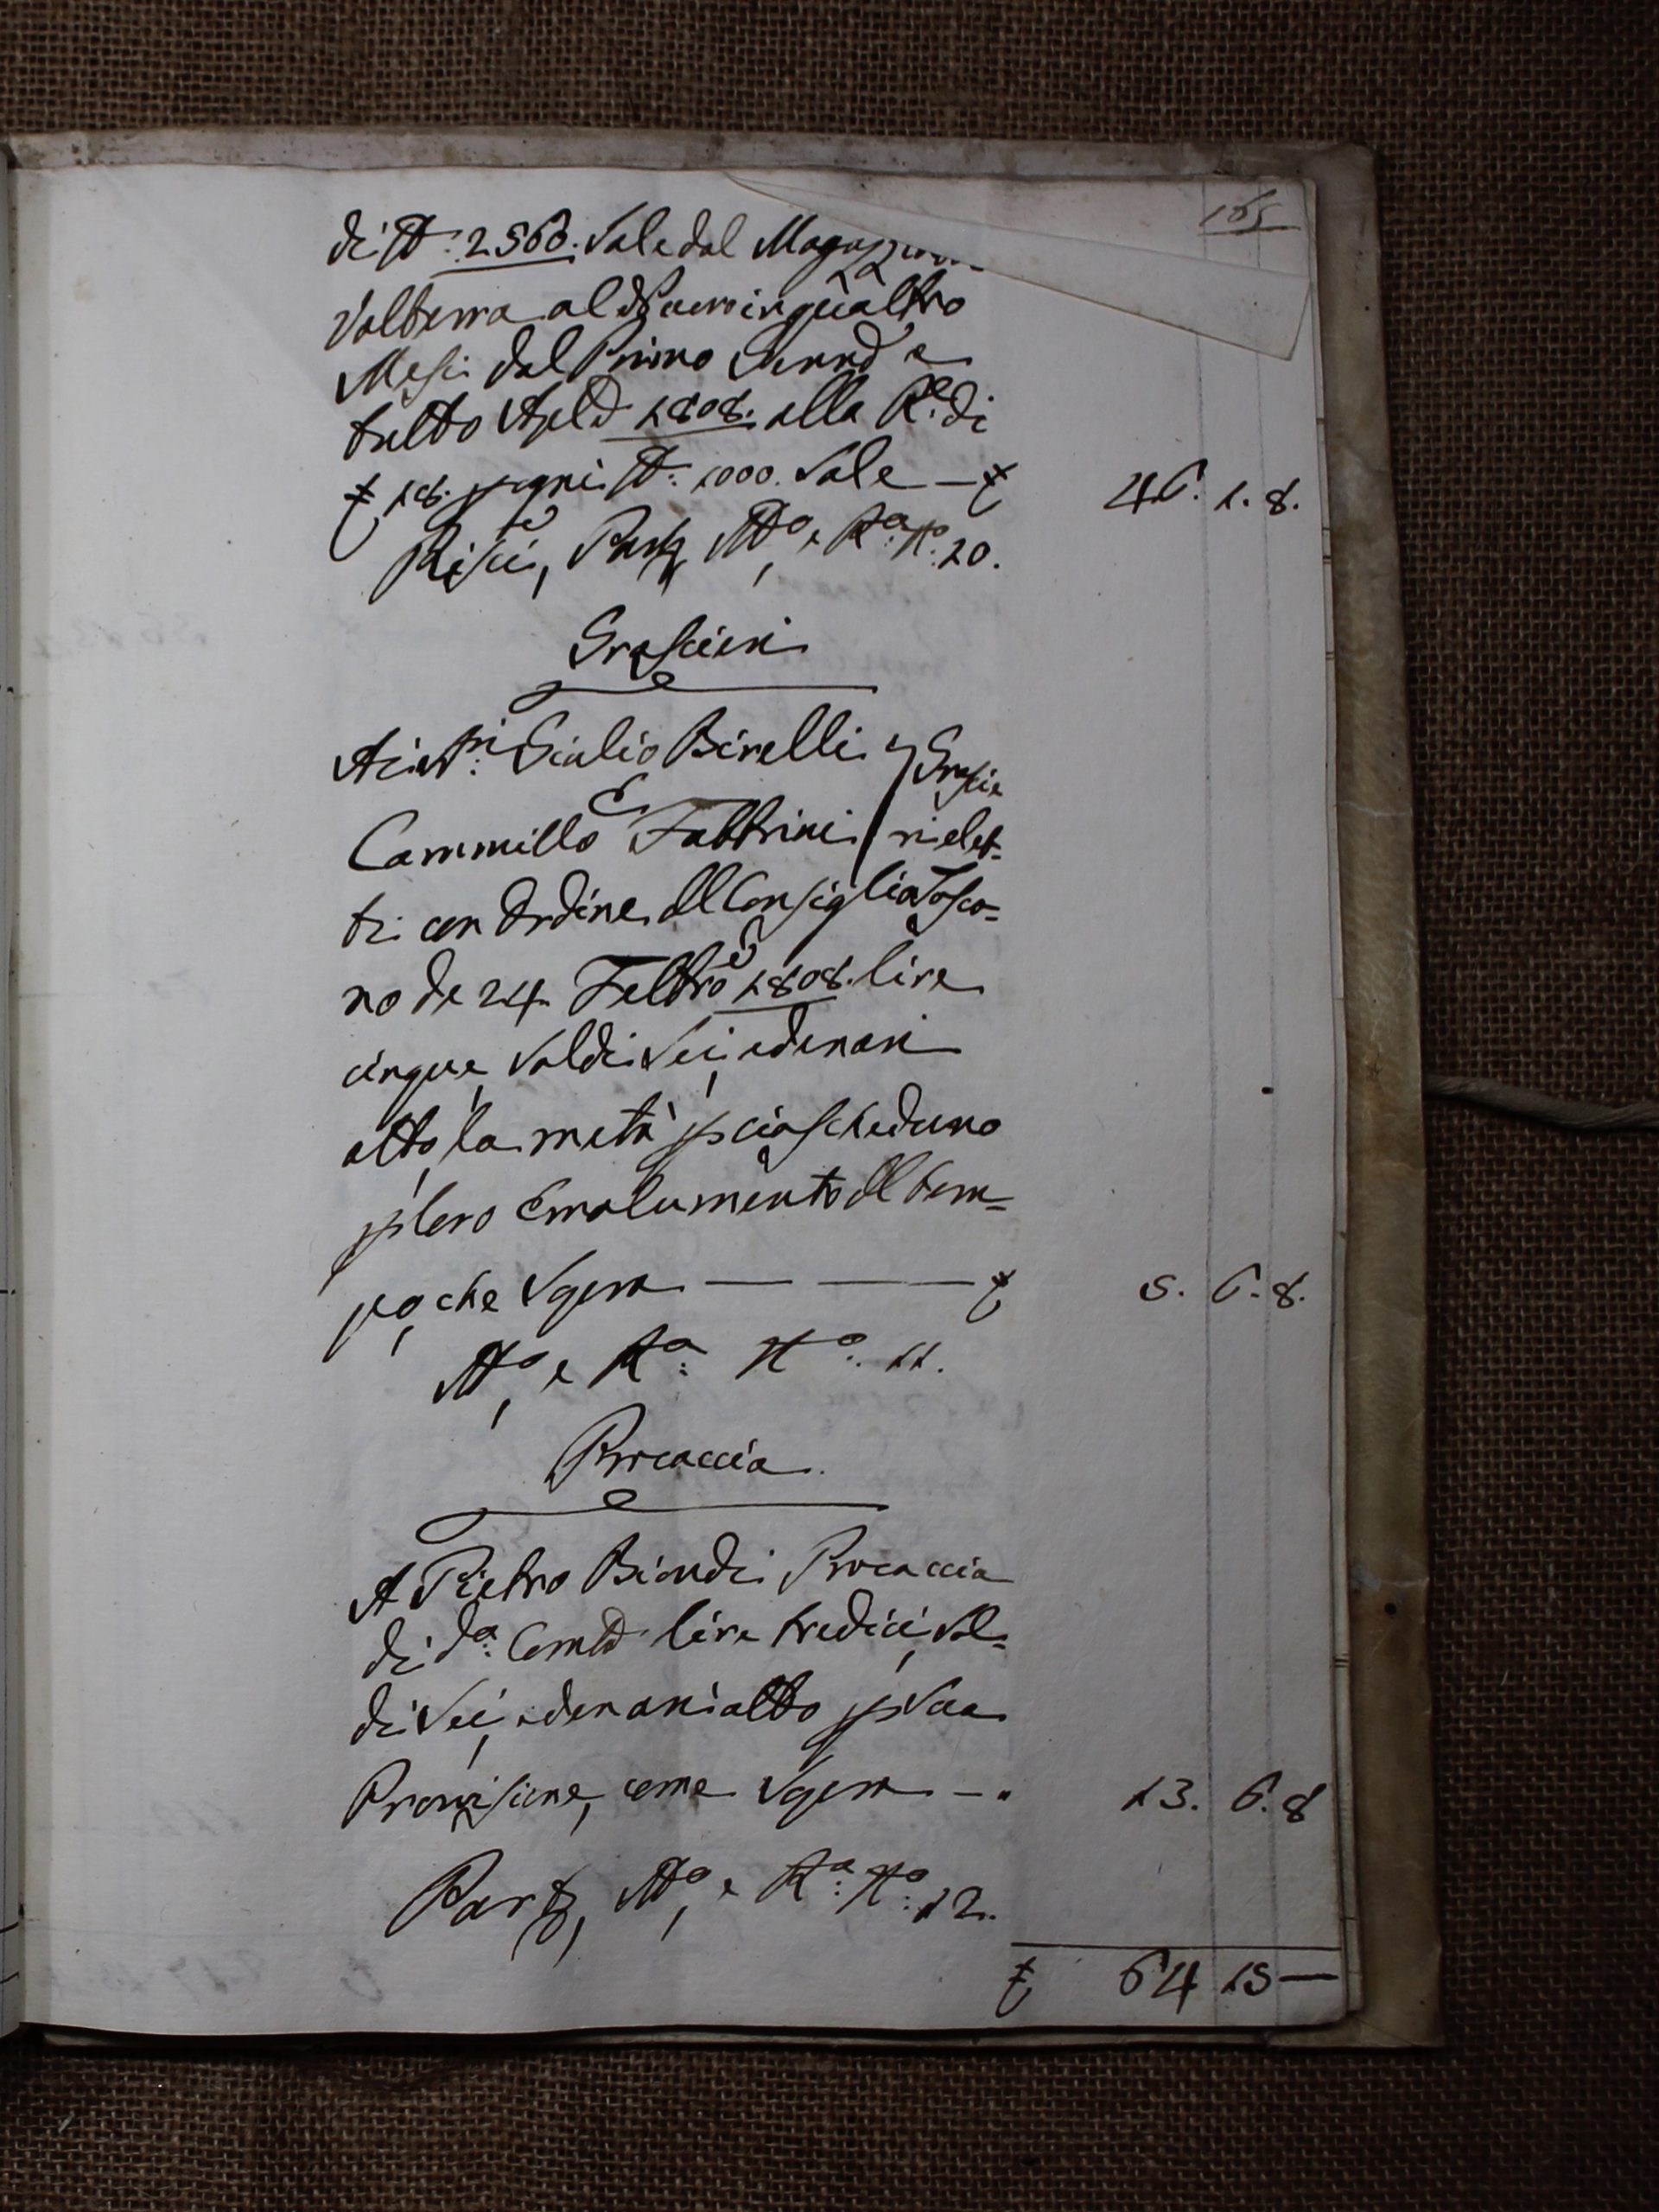 165
di ℔: 2560. Sale dal Magazzino
Volterra al d.º Paese in quattro
Mesi dal Primo Genn.º a
tutto Aple 1808. alla R.e di
£ 18. p ogni ℔: 1000. Sale — £ 46. 1. 8.
Risci, Partz, Mto, e Ra: No. 10.
Grascieri
Ai Sri: Giulio Birelli
E
Cammillo Fabbrini
Grascie
ri elet-
ti con Ordine del Consiglio Tosca-
no de 24 Febbro 1808. lire
cinque, Soldi Sei, e denari
otto, la metà p ciascheduno
p loro Emolumento del tem-
po, che Sopra — — £ 5. 6. 8.
Mto, e Ra: No. 11.
Procaccia
A Pietro Biondi Procaccia
di da: Comtà lire tredici, Sol-
di Sei, e denari otto p Sua
Provvisione, come Sopra — " 13. 6. 8
Partz, Mto, e Ra: No: 12.
£ 64 15 —